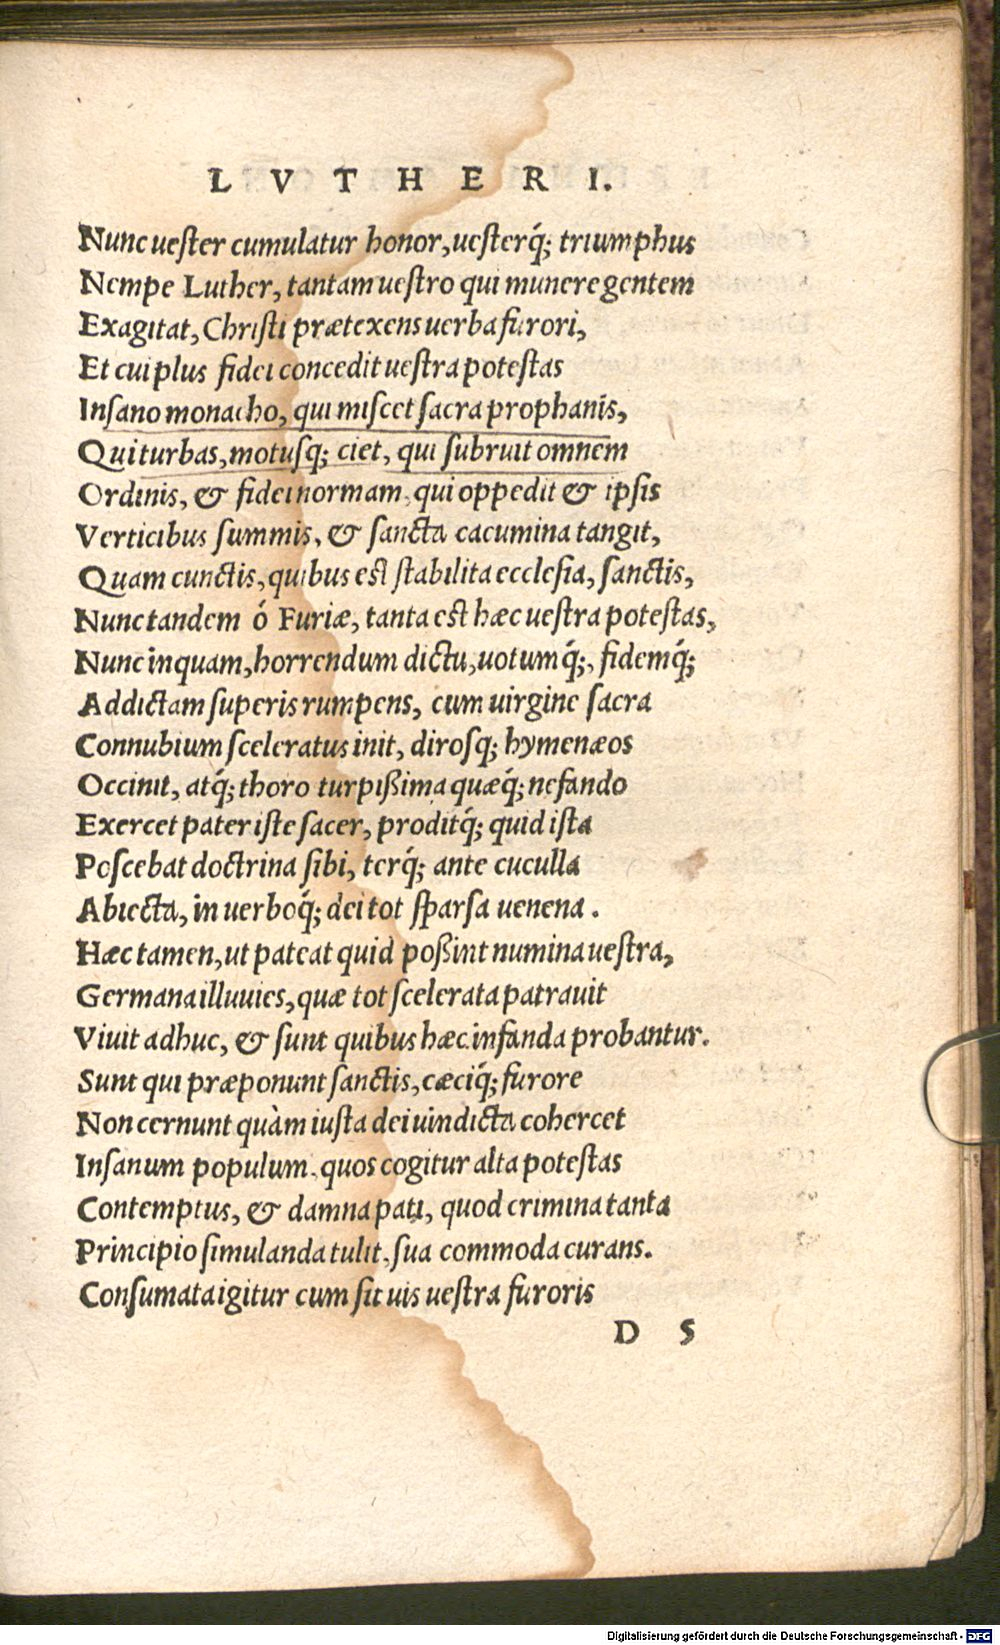 LVTHERI.
Nunc uester cumulatur honor, uesterq́; triumphus
Nempe Luther, tantam uestro qui munere gentem
Exagitat, Christi prætexens uerba furori,
Et cui plus fidei concedit uestra potestas
Insano monacho, qui miscet sacra prophanis,
Qui turbas, motusq; ciet, qui subruit omnem
Ordinis, & fidei normam, qui oppedit & ipsis
Verticibus summis, & sancta cacumina tangit,
Quam cunctis, quibus est stabilita ecclesia, sanctis,
Nunc tandem ó Furiæ, tanta est hæc uestra potestas,
Nunc inquam, horrendum dictu, uotumq́;, fidemq́;
Addictam superis rumpens, cum uirgine sacra
Connubium sceleratus init, dirosq; hymenæos
Occinit, atq́; thoro turpißima quæq́; nefando
Exercet pater iste sacer, proditq́; quid ista
Poscebat doctrina sibi, terq́; ante cuculla
Abiecta, in uerboq́; dei tot sparsa uenena.
Hæc tamen, ut pateat quid poßint numina uestra,
Germana illuuies, quæ tot scelerata patrauit
Viuit adhuc, & sunt quibus hæc infanda probantur.
Sunt qui præponunt sanctis, cæciq́; furore
Non cernunt quàm iusta dei uindicta cohercet
Insanum populum, quos cogitur alta potestas
Contemptus, & damna pati, quod crimina tanta
Principio simulanda tulit, sua commoda curans.
Consumata igitur cum sit uis uestra furoris
D S
Digitalisierung gefördert durch die Deutsche Forschungsgemeinschaft - DFG